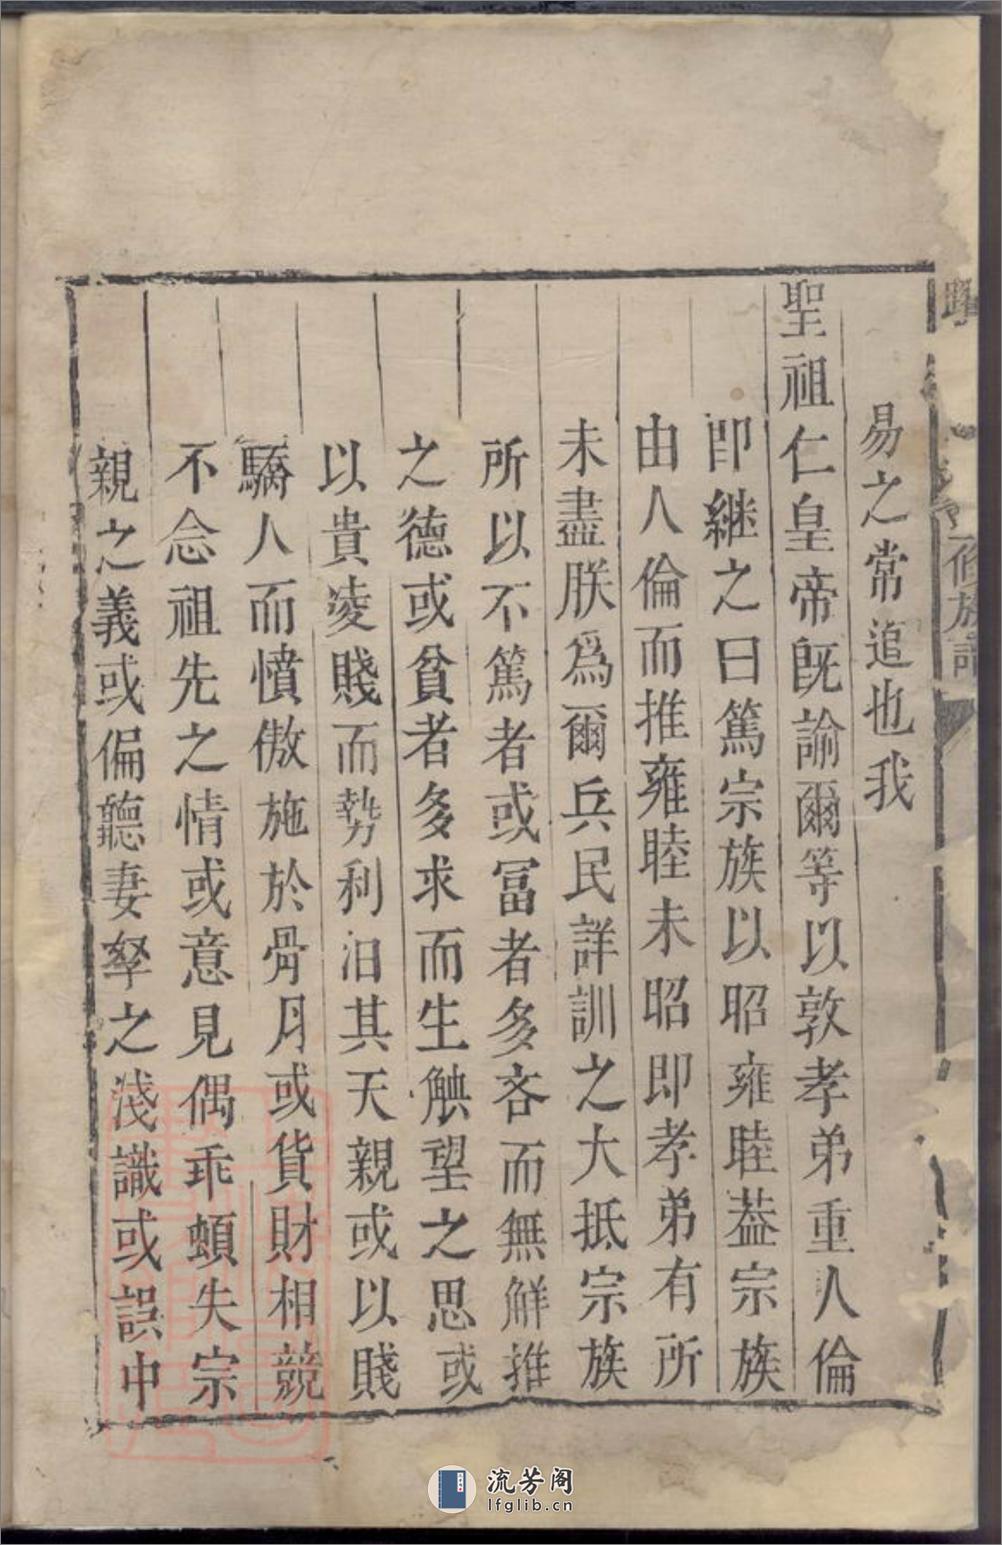 易之常追也我
聖祖仁皇帝旣諭爾等以敦孝弟重人倫
卽繼之曰篤宗族以昭雍睦葢宗族
由人倫而推雍睦未昭卽孝弟有所
未盡朕爲爾兵民詳訓之大抵宗族
所以不篤者或冨者多吝而無觧推
之德或貧者多求而生觖望之思或
以貴凌賤而勢利汨其天親或以賤
驕人而憤傲施於骨月或貨財相競
不念祖先之情或意見偶乖頓失宗
親之義或偏聽妻孥之淺識或誤中
二修族譜
流芳阁
lfglib.cn